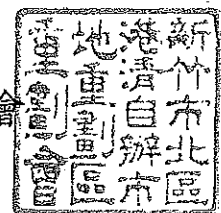 新竹市北區
港清自辦市
地重劃區
重劃會
會